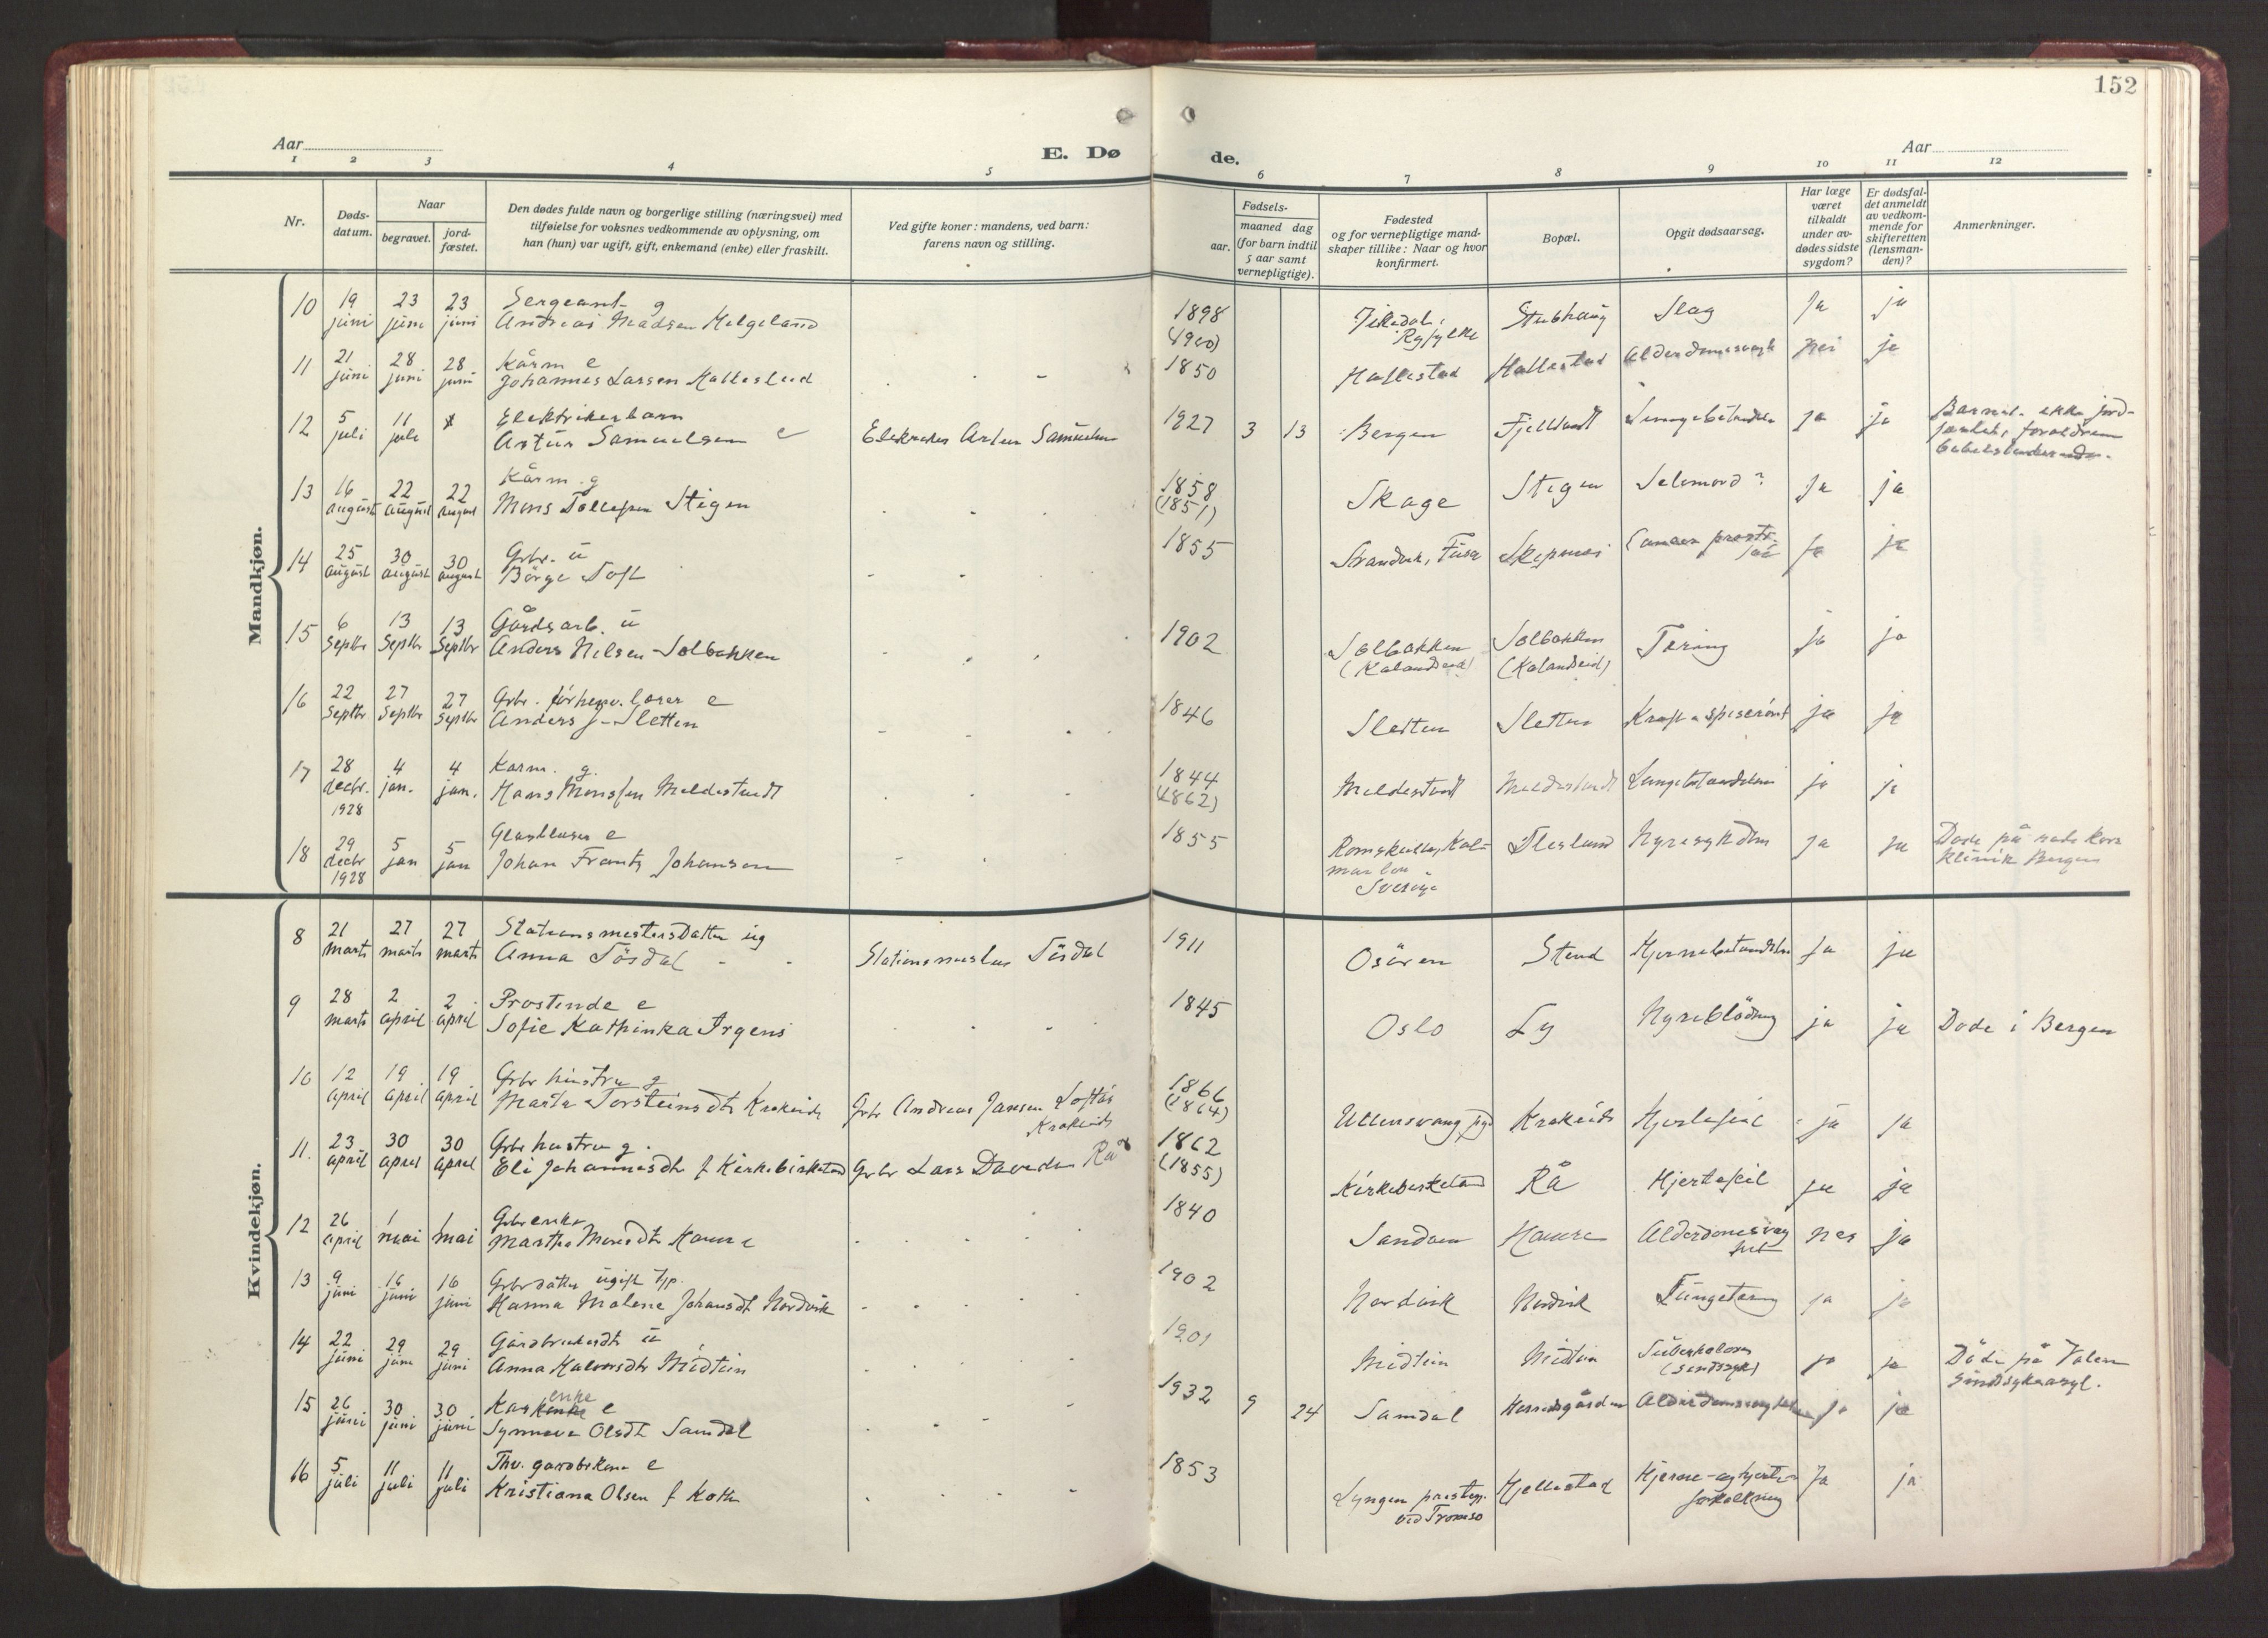 152
Aar
Aar
E. Dø
de.
1 2 3 4 5 6 7 8 9 10 11 12
Nr.
Døds-
datum.
Naar
begravet.
jord-
fæstet.
Den dødes fulde navn og borgerlige stilling (næringsvei) med
tilføielse for voksnes vedkommende av oplysning, om
han (hun) var ugift, gift, enkemand (enke) eller fraskilt.
Ved gifte koner: mandens, ved barn:
farens navn og stilling.
Fødsels-
aar.
maaned dag
(for barn indtil
5 aar samt
vernepligtige).
Fødested
og for vernepligtige mand-
skaper tillike: Naar og hvor
konfirmert.
Bopæl.
Opgit dødsaarsag.
Har læge
været
tilkaldt
under av-
dødes sidste
sygdom?
Er dødsfal-
det anmeldt
av vedkom-
mende for
skifteretten
(lensman-
den)?
Anmerkninger.
Mandkjøn.
10 19 juni 23 juni 23 juni Sergeant g
Andreas Madsen Helgeland 1898 (1900) Ryfylke Stubhaug Slag ja ja
11 21 juni 28 juni 28 juni Kårm e
Johannes Larsen Hallestad 1850 Hallestad Hallestad nei ja
12 5 juli 11 juli Elektrikerbarn
Artur Samuelsen Artur Samuelsen 1927 3 13 Bergen ja ja
13 16 august 22 august 22 august Kårm. g
Mons Tollefsen Stigen 1858 (1851) Skage Stigen Selvmord? ja ja
14 25 august 30 august 30 august Gbr. u
Börge Toft 1855 Strandvik, Fusa Skeismoi ja ja
15 6 Septbr 13 Septbr 13 Septbr Gårdsarb. u
Anders Nilsen Solbakken 1902 Solbakken (Kalandseid) Solbakken (Kalandseid) Tæring ja ja
16 22 Septbr 27 Septbr 27 Septbr Gbr. förhenv. lærer e
Anders J. Sletten 1846 Sletten Sletten Kræft i spiserör ja ja
17 28 decbr. 1928 4 jan. 4 jan. Karm. g.
Hans Monsen Mildestveit 1844 (1862) Lungebetændelse ja ja
18 29 decbr 1928 5 jan 5 jan Glasblaser e
Johan Frantz Johansen 1855 Sverige Flesland Nyresykdom ja ja Döde på röde kors
klinik Bergen
Kvindekjøn.
8 21 marts 27 marts 27 marts Stationsmestersdatter ug
Anna Tösdal Stationsmester Tösdal 1911 Osören Stend Hjernebetændelse ja ja
9 28 marts 2 april 2 april Prostinde e
Sofie Kathinka Irgens 1845 Oslo Ly Nyreblödning ja ja Döde i Bergen
10 12 april 19 april 19 april Gbr hustru g
Marta Torsteinsdtr Krokeide Gbr Andreas Jansen Loftås
Krokeide 1866 (1864) Ullensvang pgd Krokeide Hjertefeil ja ja
11. 23 april 30 april 30 april Gbr hustru g.
Eli Johannesdtr f Kirkebirkeland Gbr Lars Davidsen Rå 1862 (1855) Kirkebirkeland Rå Hjertefeil ja ja
12 26 april 1 mai 1 mai Gbr enke
Martha Monsdtr Hamre 1840 Sandven Hamre Alderdomssvag
het nei ja
13 9 juni 16 juni 16 juni Gbr datter ugift
Hanna Malene Johansdtr Nordvik 1902 Nordvik Nordvik Lungetæring ja ja
14 22 juni 29 juni 29 juni Gårdbrukerdtr u
Anna Halvorsdtr Midttun 1901 Midttun Midttun (sindssyk) ja ja Döde på Valen
Sindsykeasyl.
15 26 juni 30 juni 30 juni enke e
Synneva Olsdtr Samdal 1932 9 24 Samdal Herredsgården Alderdomssvaghet ja ja
16 5 juli 11 juli 11 juli Thv. e
Kristiana Olsen f 1853 Lyngen prestegj.
ved Tromsö Hjellestad Hjerne- og hjerte-
forkalkning ja ja